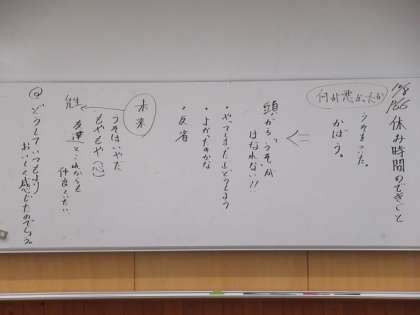 休み時間のできごと
何が悪かったか
うそをついた。
かばう。
頭から、うそが
はなれない!!
・やってしまったどうしよう
・よかったのかな
・反省
未来
うそはいやだ
もやもや(心)
友達とこれからも
仲良くしたい
@どうしていつもより
おいしく感じたのでしょう。